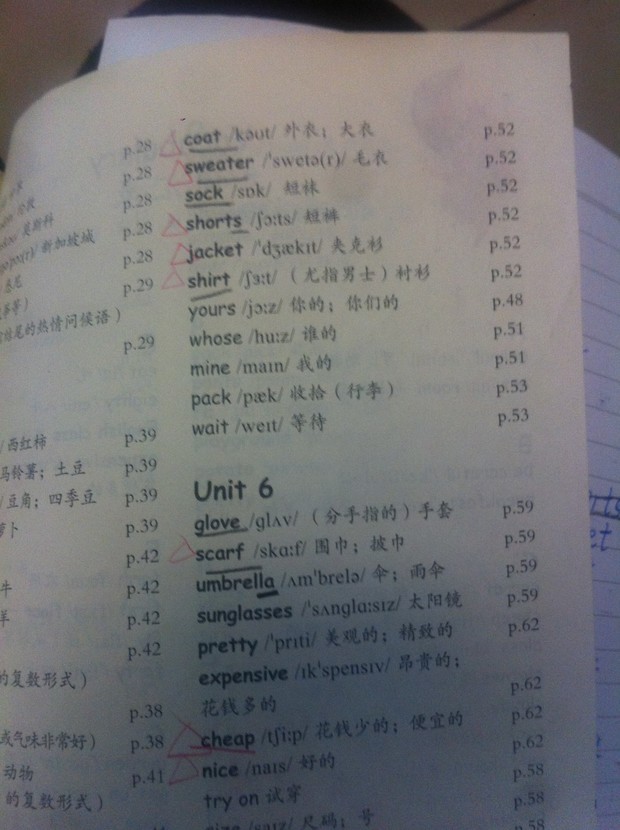 p.28
p.28
p.28
莫斯科 p.28
新加坡城 p.28
p.29
的热情问候语）
p.29
/西红柿 p.39
马铃薯；土豆 p.39
/豆角；四季豆 p.39
p.39
p.42
牛 p.42
羊 p.42
p.42
的复数形式）
p.38
或气味非常好） p.38
动物 p.41
的复数形式）
coat /kəʊt/ 外衣；大衣 p.52
sweater /ˈswetə(r)/ 毛衣 p.52
sock /sɒk/ 短袜 p.52
shorts /ʃɔːts/ 短裤 p.52
jacket /ˈdʒækɪt/ 夹克衫 p.52
shirt /ʃɜːt/ （尤指男士）衬衫 p.52
yours /jɔːz/ 你的；你们的 p.48
whose /huːz/ 谁的 p.51
mine /maɪn/ 我的 p.51
pack /pæk/ 收拾（行李） p.53
wait /weɪt/ 等待 p.53
Unit 6
glove /ɡlʌv/ （分手指的）手套 p.59
scarf /skɑːf/ 围巾；披巾 p.59
umbrella /ʌmˈbrelə/ 伞；雨伞 p.59
sunglasses /ˈsʌnɡlɑːsɪz/ 太阳镜 p.59
pretty /ˈprɪti/ 美观的；精致的 p.62
expensive /ɪkˈspensɪv/ 昂贵的；
花钱多的 p.62
cheap /tʃiːp/ 花钱少的；便宜的 p.62
nice /naɪs/ 好的 p.62
try on 试穿 p.58
size /saɪz/ 尺码；号 p.58